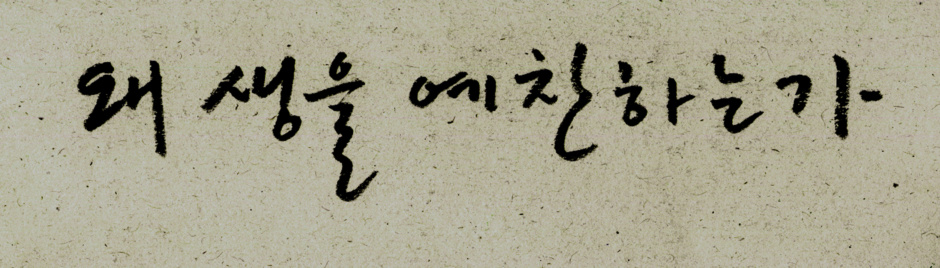 왜 생을 예찬하는가